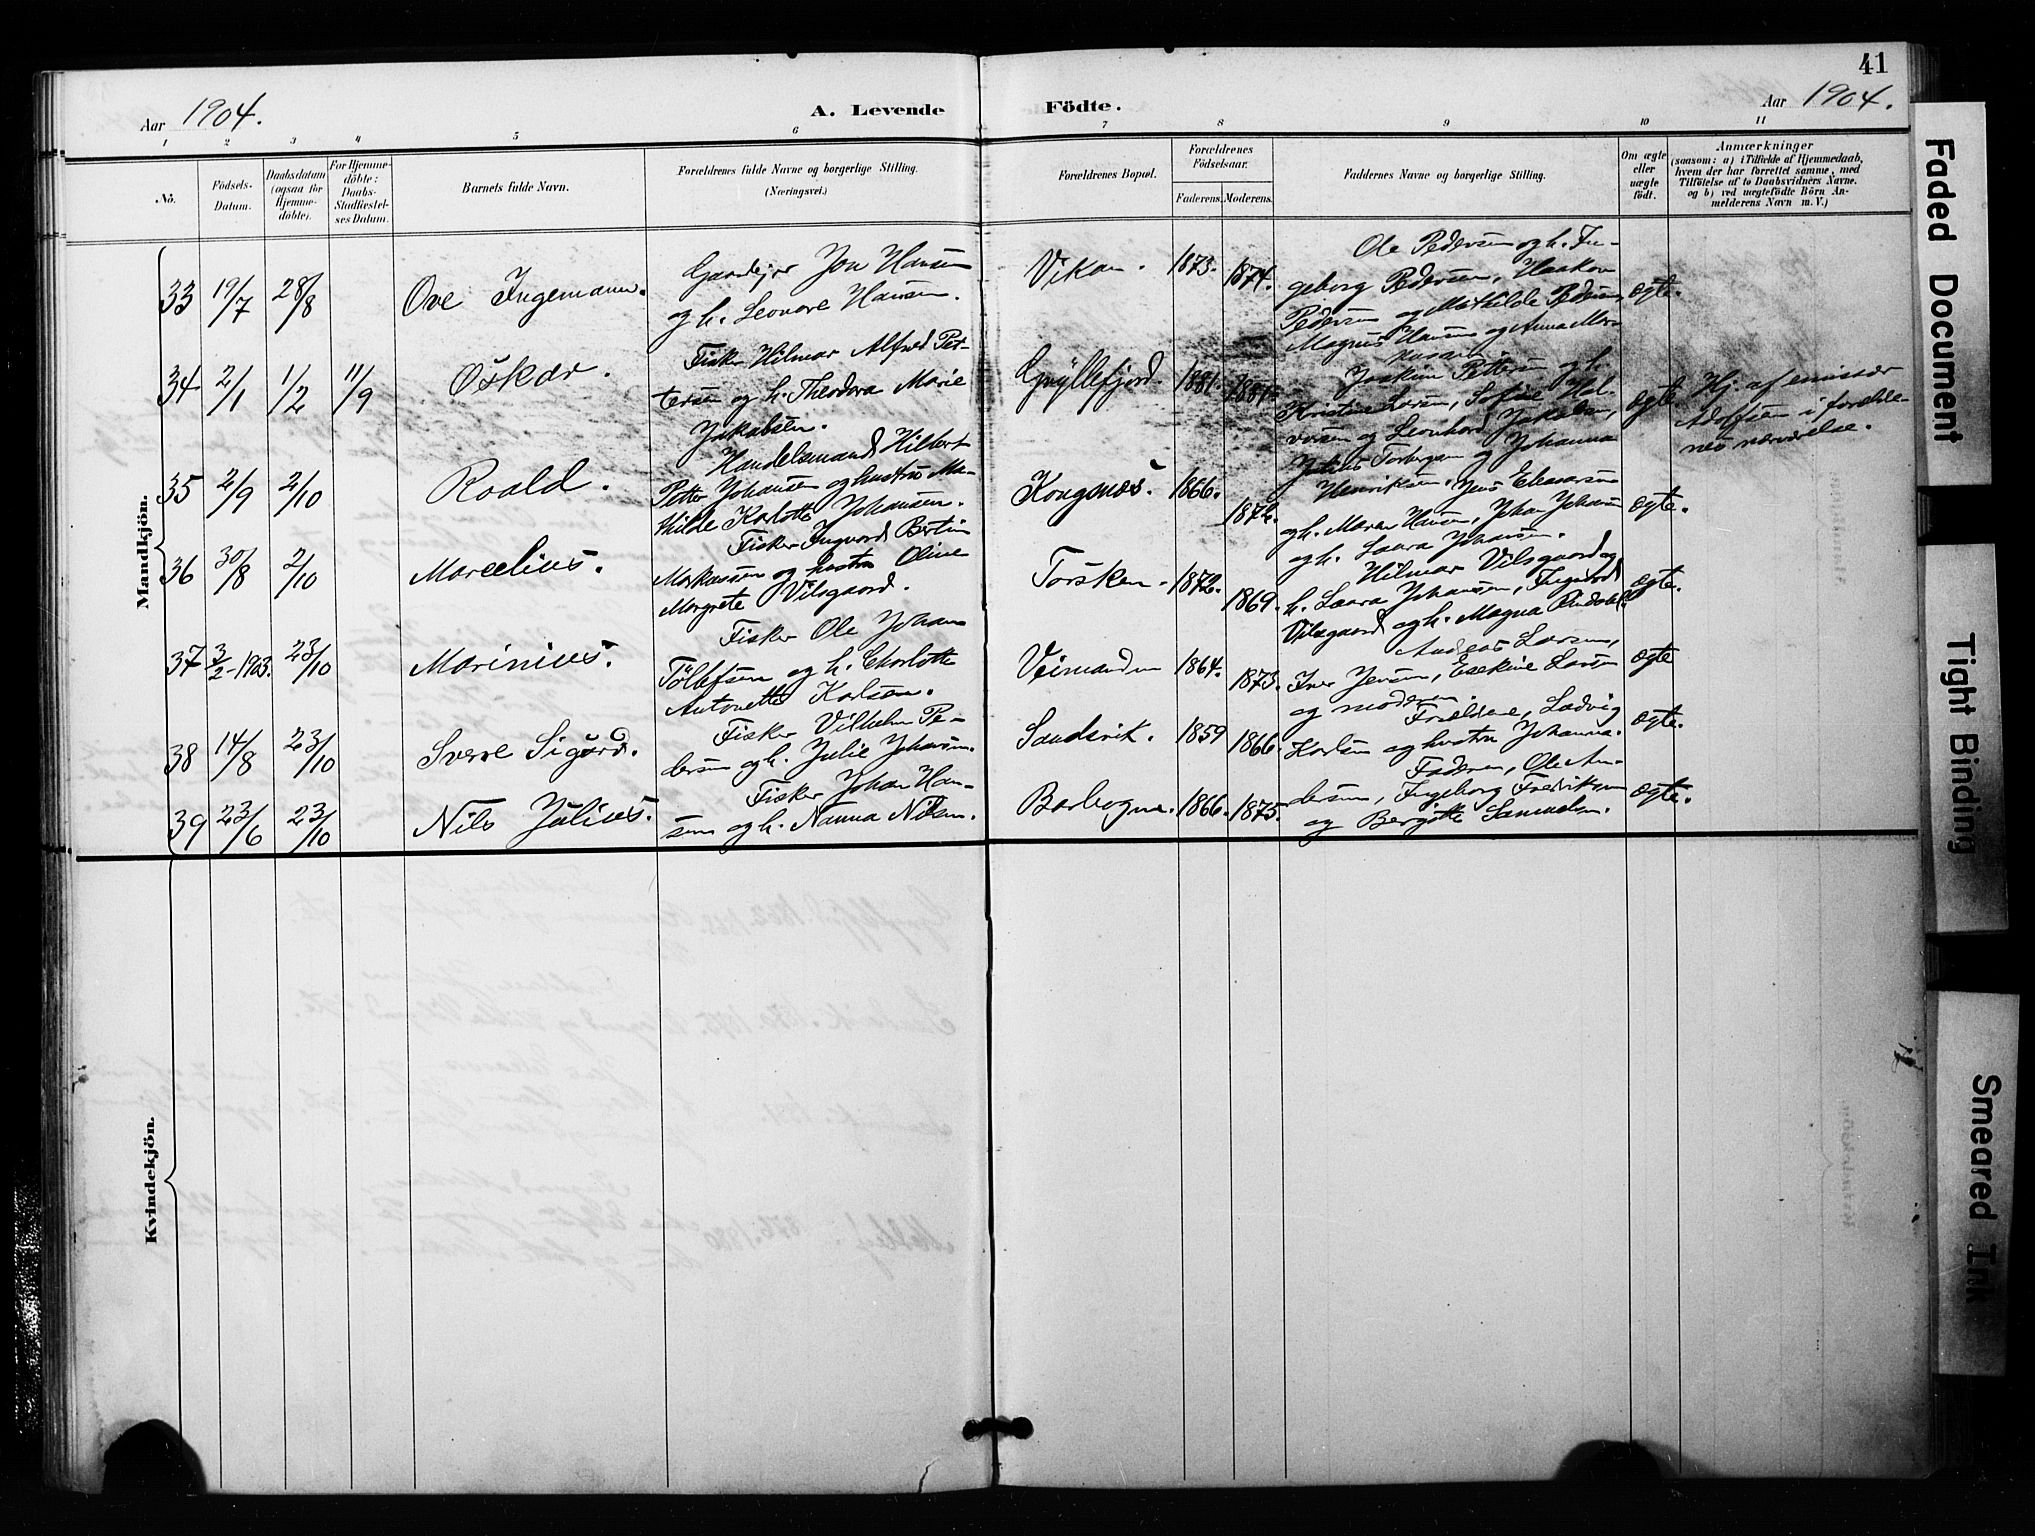 41
Aar 1904. A. Levende Födte. Aar 1904.
1 2 3 4 5 6 7 8 9 10 11
No.
Födsels-Datum.
Daabsdatum (ogsaa for Hjemmedöbte).
For Hjemmedöbte: Daabs-Stadfæstelses Datum.
Barnets fulde Navn.
Forældrenes fulde Navne og borgerlige Stilling.
(Næringsvei.)
Forældrenes Bopæl.
Forældrenes Födselsaar.
Faderens. Moderens.
Faddernes Navne og borgerlige Stilling.
Om ægte eller uægte födt.
Anmærkninger
(saasom: a) i Tilfælde af Hjemmedaab,
hvem der har forrettet samme, med
Tilföielse af to Daabsvidners Navne.
og b) ved uægtefödte Börn An-
melderens Navn m. V.)
Mandkjön.
33 19/7 28/8 Ove Ingemann.
Gaardejer Jon Hansen
og h. Leonore Hansen.
Vikan. 1873. 1874.
Ole Pedersen og h. In-
geborg Pedersen, Haakon
Pedersen og Mathilde Pedersen,
Magnus Hansen og Anna Mar-
kussen
ægte.
34 2/1 1/2 11/9 Oskar.
Fisker Hilmar Alfred Pet-
tersen og h. Theodora Marie
Jakobsen.
Gryllefjord. 1881. 1881.
Joakim Pettersen og h.
Kristine Larsen, Sofie Hal-
vorsen og Leonhard Jakobsen,
ægte
Hj. af emissær
Adolfsen i forældre-
nes nærværelse.
35 2/9 2/10 Roald.
Handelsmand Hilbert
Petter Johansen og hustru Ma-
thilde Karlotte Johansen.
Kongsnes. 1866. 1872.
Julius Torbergsen og Johanna
Henriksen, Jens Eliasersen
og h. Maren Hansen, Johan Johansen
og h. Laura Johansen.
ægte.
36 30/8 2/10 Marcelius.
Fisker Ingvard Bertin
Markussen og hustru Oline
Margrete Vilsgaard.
Torsken. 1872. 1869.
Hilmar Vilsgaard og
h. Laura Johansen, Ingvard
Vilsgaard og h. Magna
ægte.
37 3/2-1903. 23/10 Marinius.
Fisker Ole Johan
Tollefsen og h. Charlotte
Antonette Karlsen.
Veimanden 1864. 1873.
Andreas Larsen,
Iver Jensen, Eskine Larsen
og moderen.
ægte
38 14/8 23/10 Sverre Sigurd.
Fisker Vilhelm Pe-
dersen og h. Julie Johansen.
Sandsvik. 1859 1866.
Forældrene, Ludvig
Karlsen og hustru Johanna.
ægte.
39 23/6 23/10 Nils Julius.
Fisker Johan Han-
sen og h. Nanna Nilsen.
Barbogne. 1866. 1875.
Faderen, Ole An-
dersen, Ingeborg Fredriksen
og Bergitte Samuelsen.
ægte.
Kvindekjön.
Faded Document
Tight Binding
Smeared Ink